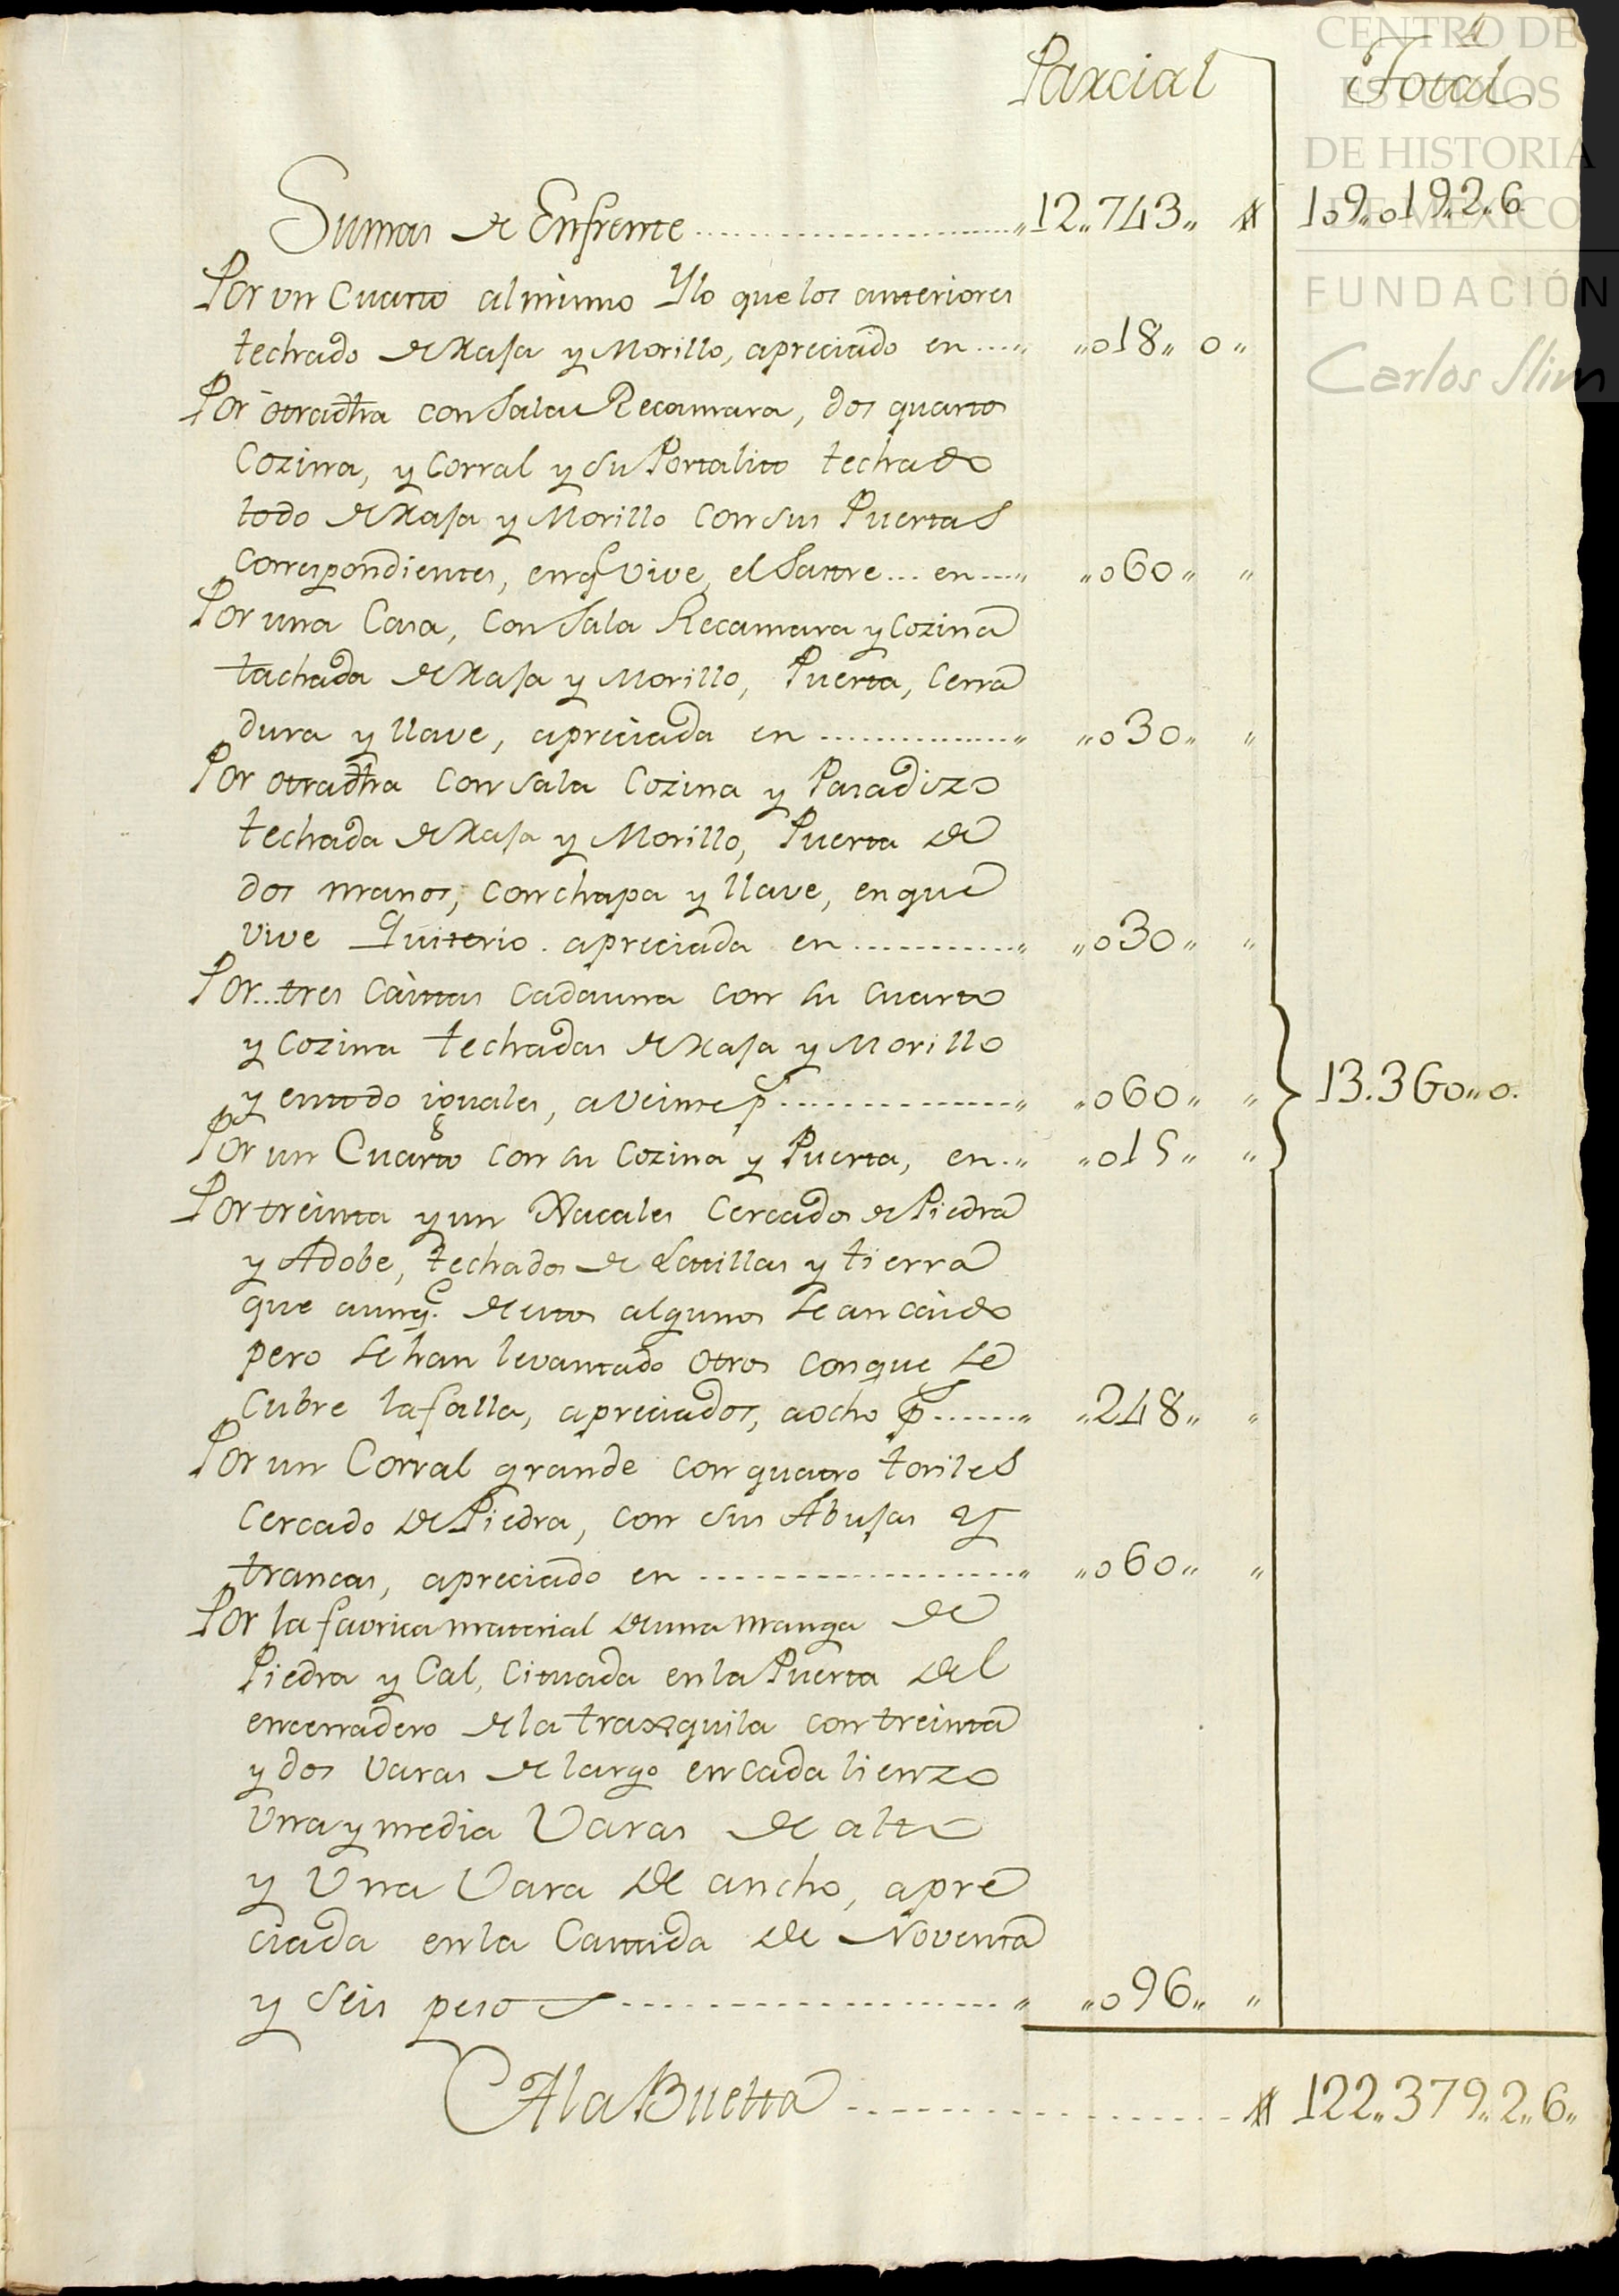 Parcial Total
Sumas de Enfrente ,, 12,,743,, # 109,,019,,2,,6
Por vn Cuarto al mismo Ylo que los anteriores
techado de Xaja y Morillo, apreciado en ,, ,,018,, 0,,
Por otra dha con Sala Recamara, dos quartos
Cozina, y Corral y su Portalito techado
todo de Xaja y Morillo con sus Puertas
Correspondientes, en q.e Vive, el Sastre... en ,, ,,060,, ,,
Por una Casa, con Sala Recamara y Cozina
tachada de Xaja y Morillo, Puerta, Cerra
dura y llave, apreciada en ,, ,,030,, ,,
Por otra dha con sala Cozina y Pasadizo
techada de Xaja y Morillo, Puerta de
dos manos, con chapa y llave, en que
vive Quiterio. apreciada en ,, ,,030,, ,,
Por... tres Caitas cada una con su cuarto
y Cozina techadas de Xaja y Morillo
y en todo iguales, a Veinte p.s ,, ,,060,, ,, 13.360,,0.
Por un Cuarto con su Cozina y Puerta, en ,, ,,015,, ,,
Por treinta y un Xacales Cercados de Piedra
y Adobe, techados de Latillas y tierra
que aunq.e de estos algunos se an caido
pero se han levantado otros con que se
Cubre la falla, apreciados, a ocho p.s ,, ,,248,, ,,
Por un Corral grande con quatro toriles
Cercado de Piedra, con sus Abujas y
trancas, apreciado en ,, ,,060,, ,,
Por la favrica material de una manga de
Piedra y Cal, Cituada en la Puerta del
encerradero de la traxquila con treinta
y dos Varas de largo en cada lienzo
Una y media Varas de alto
y Una Vara de ancho, apre
ciada en la Cantida de Noventa
y Seis pesos ,, ,,096,, ,,
A la Buelta # 122,,379,,2,,6,,
CENTRO DE
ESTUDIOS
DE HISTORIA
DE MÉXICO
FUNDACIÓN
Carlos Slim